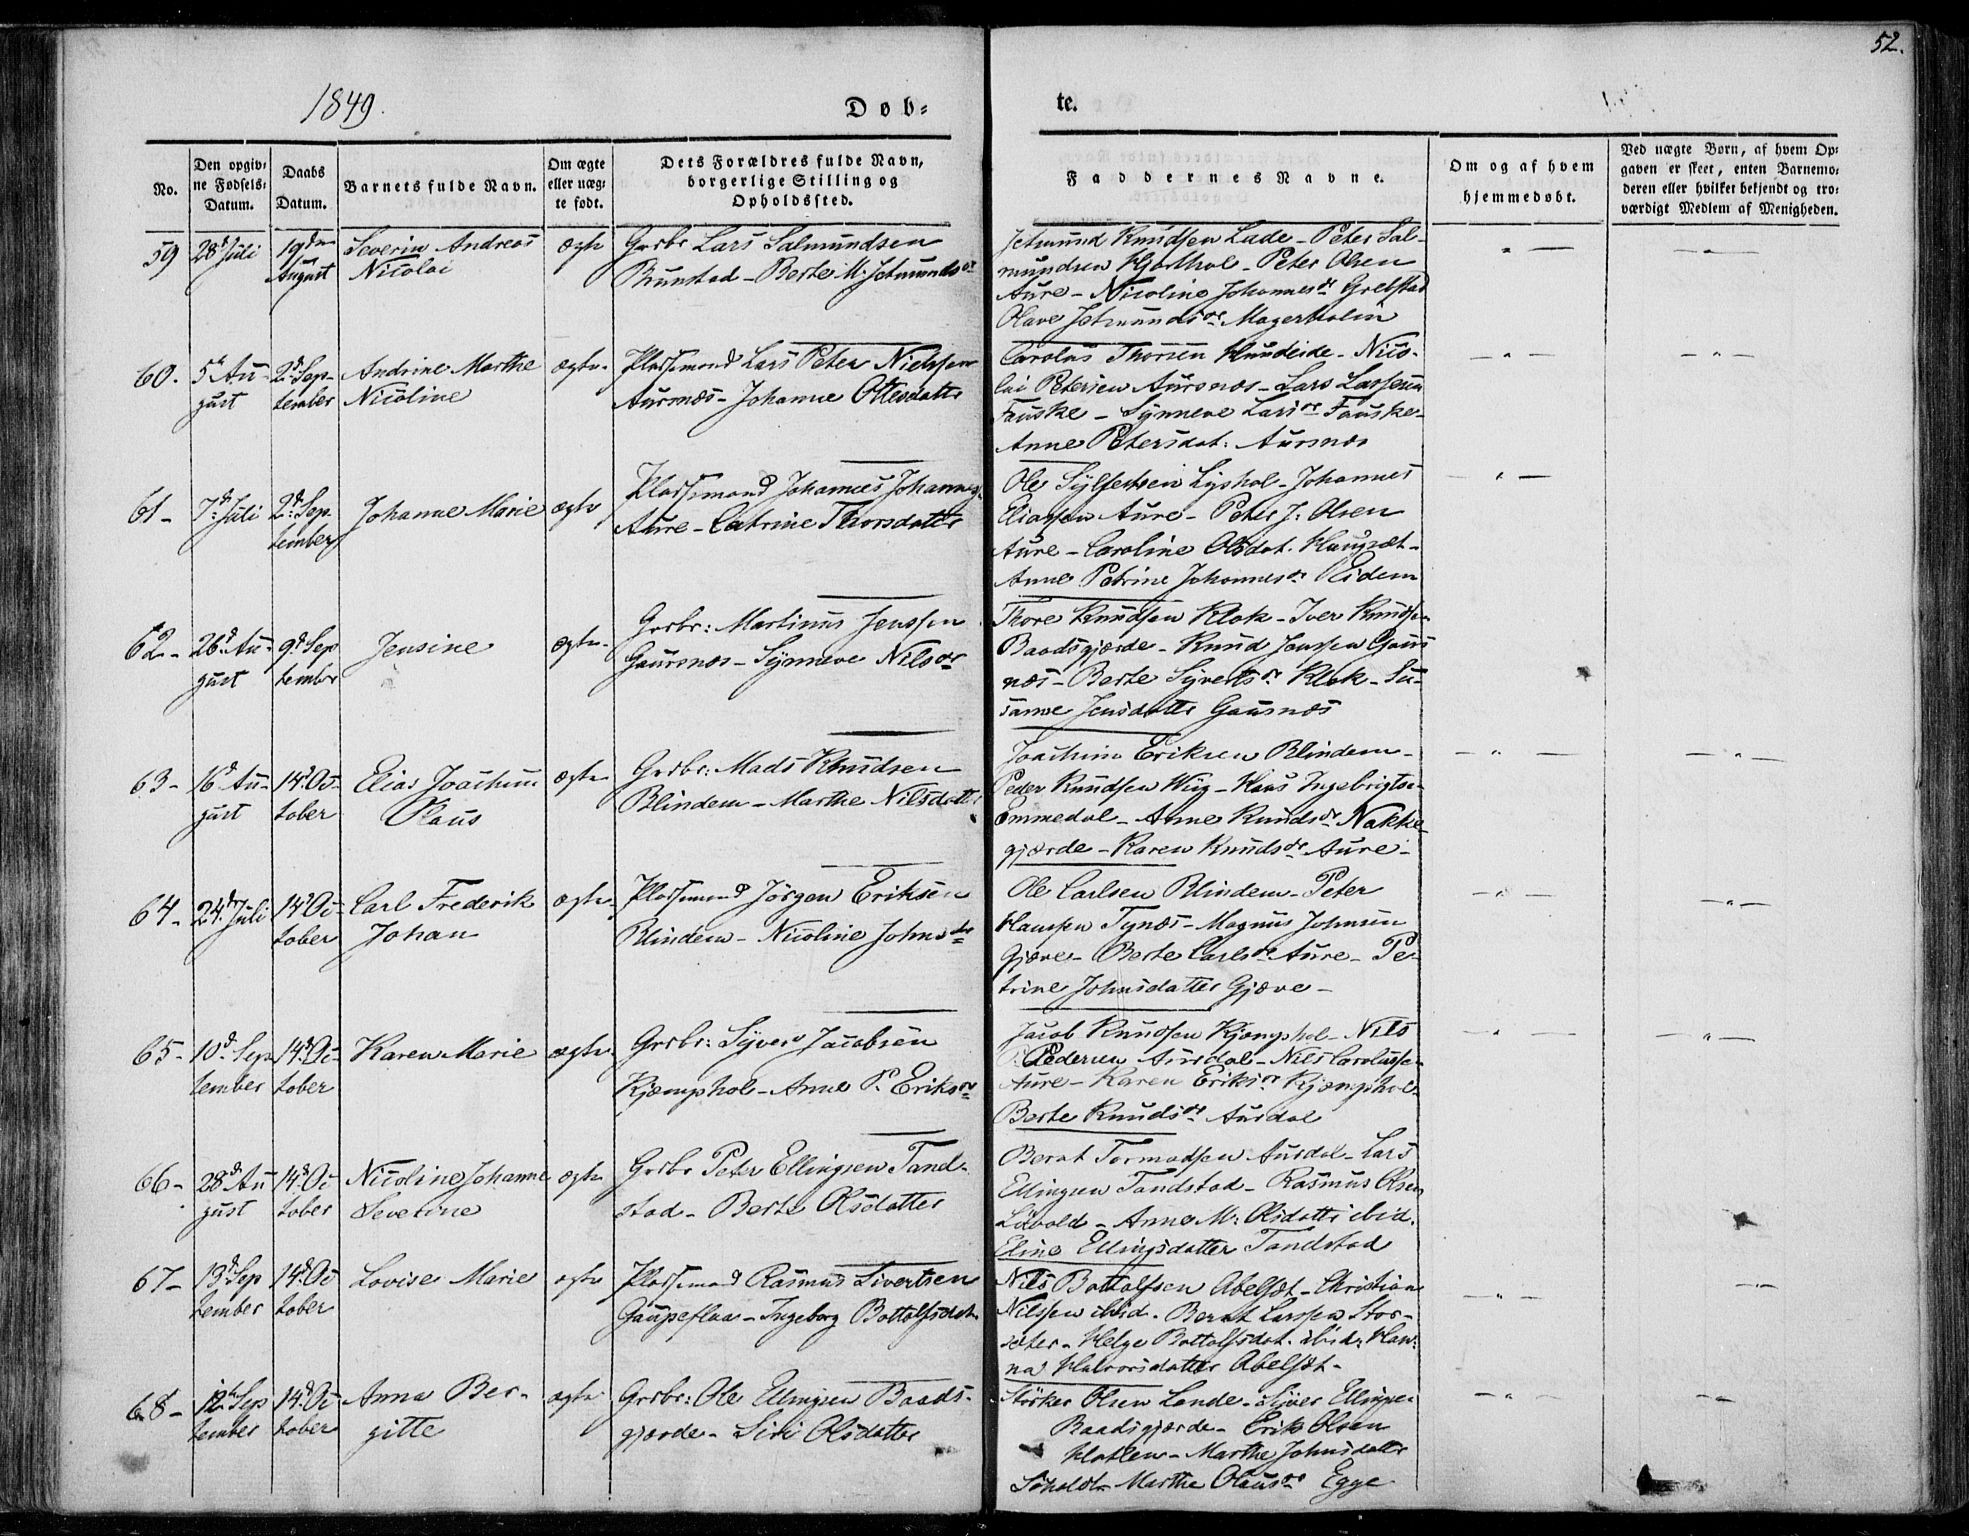 52.
1849.
Døb=
te.
No.
Den opgiv=
ne Fødsels=
Datum.
Daabs
Datum.
Barnets fulde Navn.
Om ægte
eller uæg=
te født.
Dets Forældres fulde Navn,
borgerlige Stilling og
Opholdssted.
Faddernes Navne.
Om og af hvem
hjemmedøbt.
Ved uægte Børn, af hvem Op=
gaven er skeet, enten Barnemo=
deren eller hvilket bekjendt og tro=
værdigt Medlem af Menigheden.
59 28d Juli 19den August
Severin Andreas
Nicolai
ægte
Grbr Lars Salmundsen
Brunstad - Berte M: Jetmundsdr
Jetmund Knudsen Lade - Peter Sal-
mundsen Hjorthol - Peter Olsen
Aure - Nicoline Johannesdr Grebstad
Olave Jetmundsdr Magerholm
60. 5te Au-
gust
2d Sep-
tember
Andrine Marthe
Nicoline
ægte
Pladsemand Lars Peter Nielsen
Aursnæs - Johanne Ottesdatter
Carolus Thorsen Hundeide - Nico-
lai Petersen Aursnæs - Lars Larssen
Fauske - Synneve Larsdr Fauske -
Anne Petersdat: Aursnæs
61 - 7d Juli 2d Sep-
tember
Johanne Marie
ægte
Pladsemand Johannes Johannes
Aure - Catrine Thorsdatter
Ole Sylfestsen Lyshol - Johannes
Eliassen Aure - Peter J: Olsen
Aure - Caroline Olsdat. Haugsæt -
Anne Petrine Johannesdr Eidem
62 - 26d Au-
gust
9d Sep
tember
Jensine
ægte
Grbr: Martinus Jenssen
Gaursnæs - Synneve Nilsdr
Thore Knudsen Klok - Iver Knudsen
Baadsgjærde - Knud Jenssen Gaurs
næs - Berte Syvertsdr Klok - Su-
sanne Jensdatter Gausnæs
63 - 16d Au-
gust
14d Oc-
tober
Elias Joachim
Olaus
ægte
Grbr: Mads Knudsen
Blindem - Marthe Nilsdatter
Joachim Eriksen Blindem -
Peder Knudsen Wiig - Hans Ingebrigtsen
Emmedal - Anne Knudsdr Nakke-
gjærde - Karen Knudsdr Aure -
64 - 24d Juli 14d Oc-
tober
Carl Frederik
Johan
ægte
Pladsemand Jörgen Eriksen
Blindem - Nicoline Johnsdr
Ole Carlsen Blindem - Peter
Hanssen Tynæs - Magnus Johnsen
Gjære - Berte Carlsdr Aure - Pe-
trine Johnsdatter Gjære -
65 - 10d Sep
tember
14d Oc-
tober
Karen Marie
ægte
Grbr: Syver Jacobsen
Kjæmphol - Anne P. Eriksdr
Jacob Knudsen Kjæmphol - Nils
Pedersen Aursdal - Nils Carolussen
Aure - Karen Eriksdr Kjæmphol -
Berte Knudsdr Ausdal
66 - 28d Au
gust
14d Oc
tober
Nicoline Johanne
Severine
ægte
Grbr Peter Ellingsen Tand-
stad - Berte Olsdatter
Bernt Tormodsen Ausdal - Lars
Ellingsen Tandstad - Rasmus Olsen
Lövold - Anne M: Olsdatter ibid.
Eline Ellingsdatter Tandstad
67 - 13d Sep
tember
14d Oc
tober
Lovise Marie
ægte
Pladsemand Rasmus Sivertsen
Gaupeflaa - Ingeborg Bottolfsdat.
Nils Bottolfsen Abelsæt - Christian
Nilssen ibid. Bernt Larssen Stor-
sæter - Helge Bottolfsdat. ibid. Han-
na Halvorsdatter Abelsæt -
68 - 12te Sep
tember
14d Oc
tober
Anna Ber-
gitte
ægte
Grbr: Ole Ellingsen Baads-
gjærde - Siri Olsdatter
Störker Olsen Lande - Syver Ellingsen
Baadsgjærde - Erik Olsen
Hatlem - Marthe Johnsdatter
Söholdt - Marthe Olausdr Egge